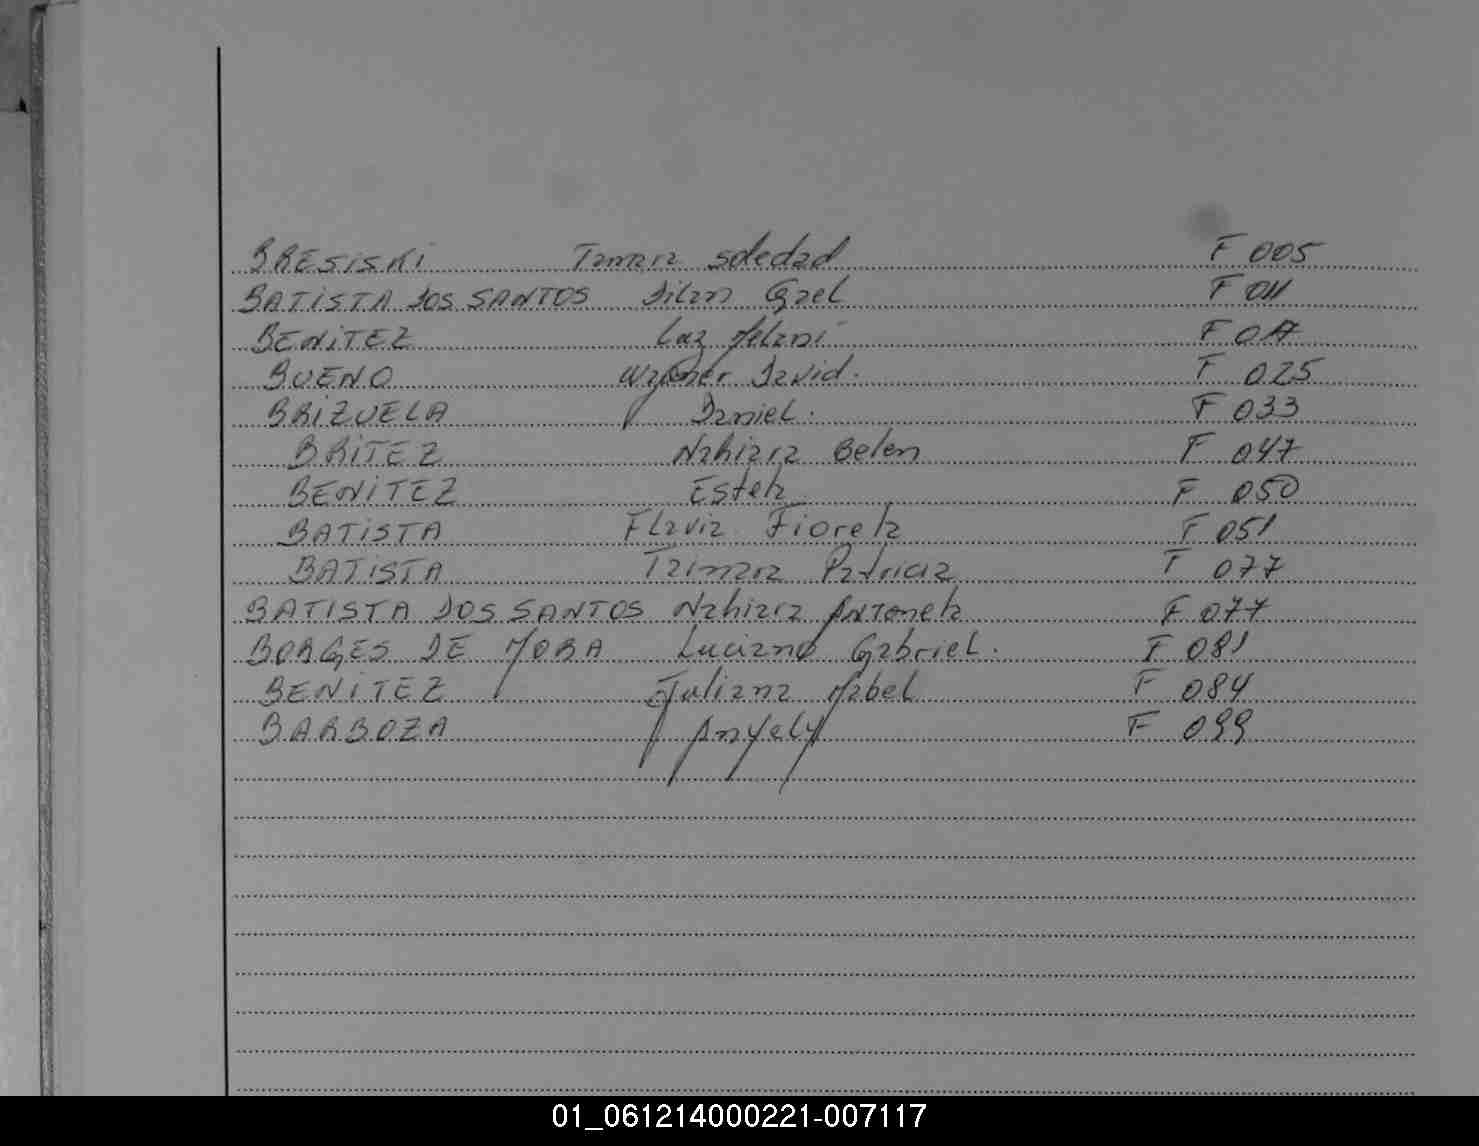 BRESISKI Tamara Soledad F 005
BATISTA DOS SANTOS Dilan Gael F 011
BENITEZ Luz Melani F 017
BUENO Wagner David. F 025
BRIZUELA Daniel. F 033
BRITEZ Nahiara Belen F 047
BENITEZ Estela F 050
BATISTA Flavia Fiorela F 051
BATISTA Taimara Patricia F 077
BATISTA DOS SANTOS Nahiara Antonela F 077
BORGES DE MORA Luciano Gabriel. F 081
BENITEZ Juliana Mabel F 084
BARBOZA Anyely F 099
01_061214000221-007117